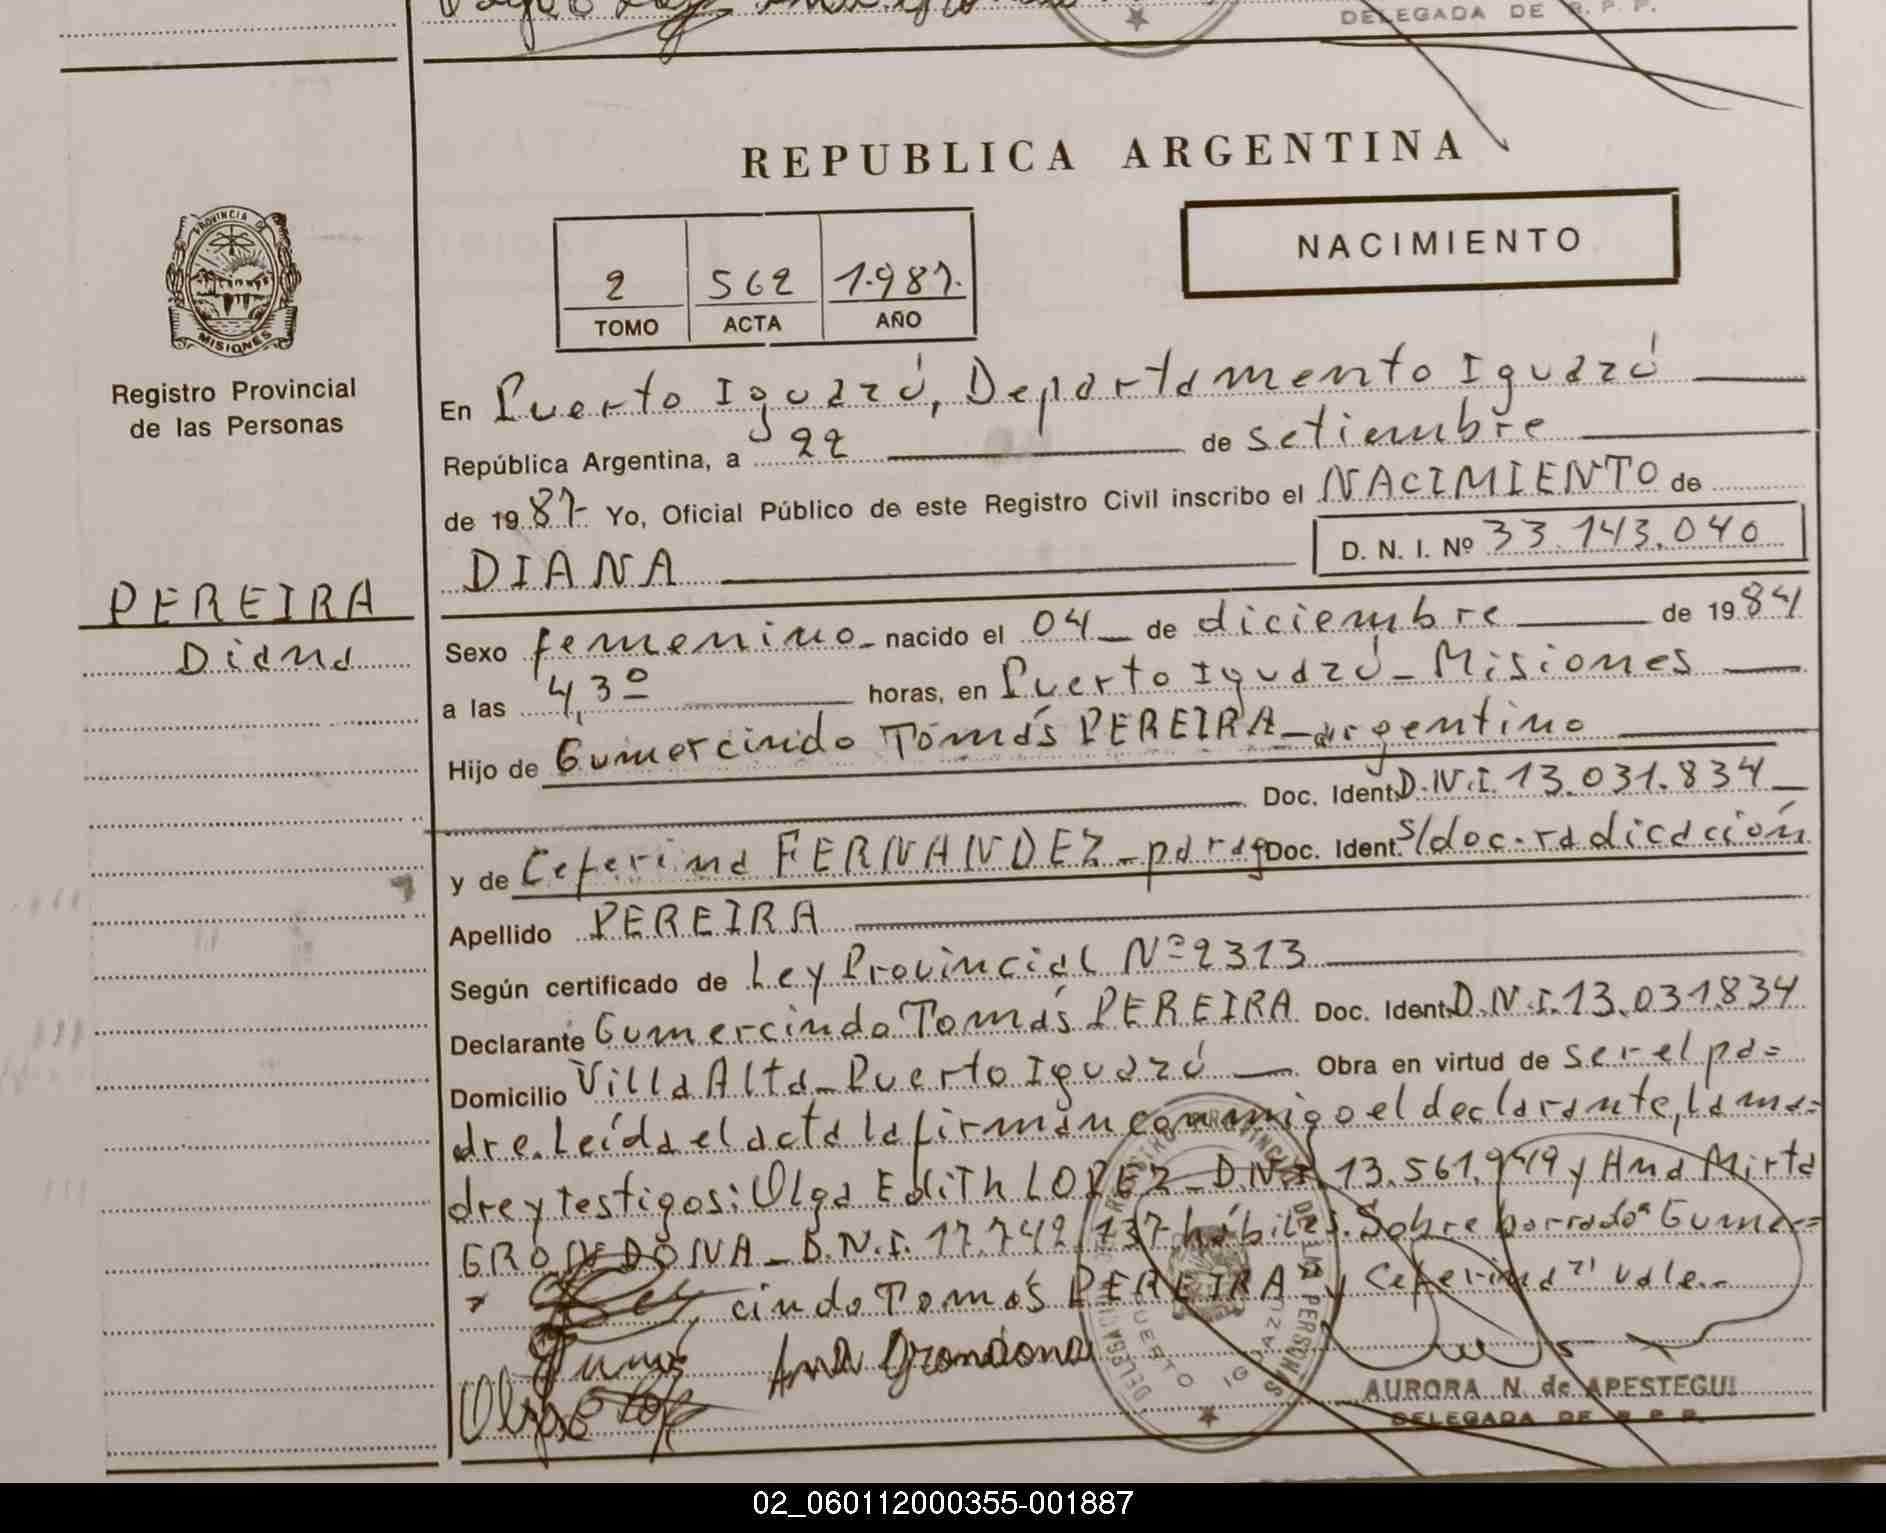 DELEGADA DE R. P. P.
REPUBLICA ARGENTINA
NACIMIENTO
2 562 1.987.
TOMO ACTA AÑO
PROVINCIA DE
MISIONES
Registro Provincial
de las Personas
PEREIRA
Diana
En Puerto Iguazú, Departamento Iguazú
República Argentina, a 22 de setiembre
de 1987- Yo, Oficial Público de este Registro Civil inscribo el NACIMIENTO de
DIANA D. N. I. Nº 33.143.040
Sexo femenino - nacido el 04 - de diciembre de 1984
a las 4,30 horas, en Puerto Iguazú - Misiones
Hijo de Gumercindo Tomás PEREIRA - argentino
Doc. Ident. D.N.I. 13.031.834
y de Ceferina FERNANDEZ - parag Doc. Ident. s/doc. radicación
Apellido PEREIRA
Según certificado de Ley Provincial Nº 2313
Declarante Gumercindo Tomás PEREIRA Doc. Ident. D.N.I. 13.031834
Domicilio Villa Alta - Puerto Iguazú Obra en virtud de ser el pa=
dre. Leída el acta la firman conmigo el declarante, la ma=
dre y testigos: Olga Edith LOPEZ - D.N.I. 13.561.949 y Ana Mirta
GRONDONA - D.N.I. 17.742.137 hábiles. Sobre borrado " Gumer=
cindo Tomás PEREIRA y Ceferina " vale.-
Ana Grondona
DELEGACION PUERTO IGUAZU
AURORA N. de APESTEGUI
DELEGADA DE R. P. P.
02_060112000355-001887